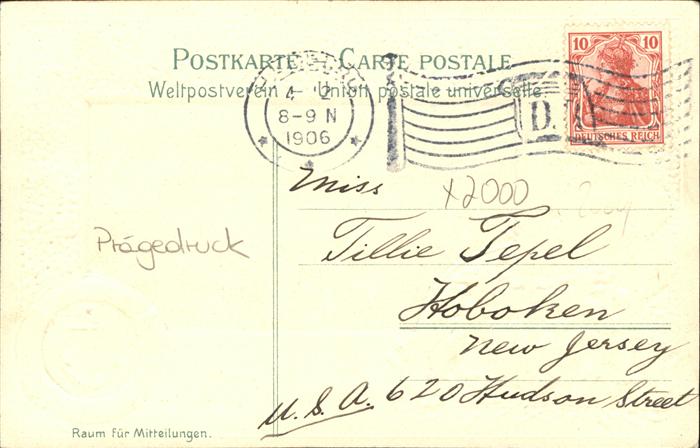 POSTKARTE – CARTE POSTALE
Weltpostverein – Union postale universelle
4 2
8-9 N
1906
D.
10 10
DEUTSCHES REICH
Miss
x2000
Tillie Tepel
Prägedruck
Hoboken
New Jersey
U. S. A. 620 Hudson Street
Raum für Mitteilungen.